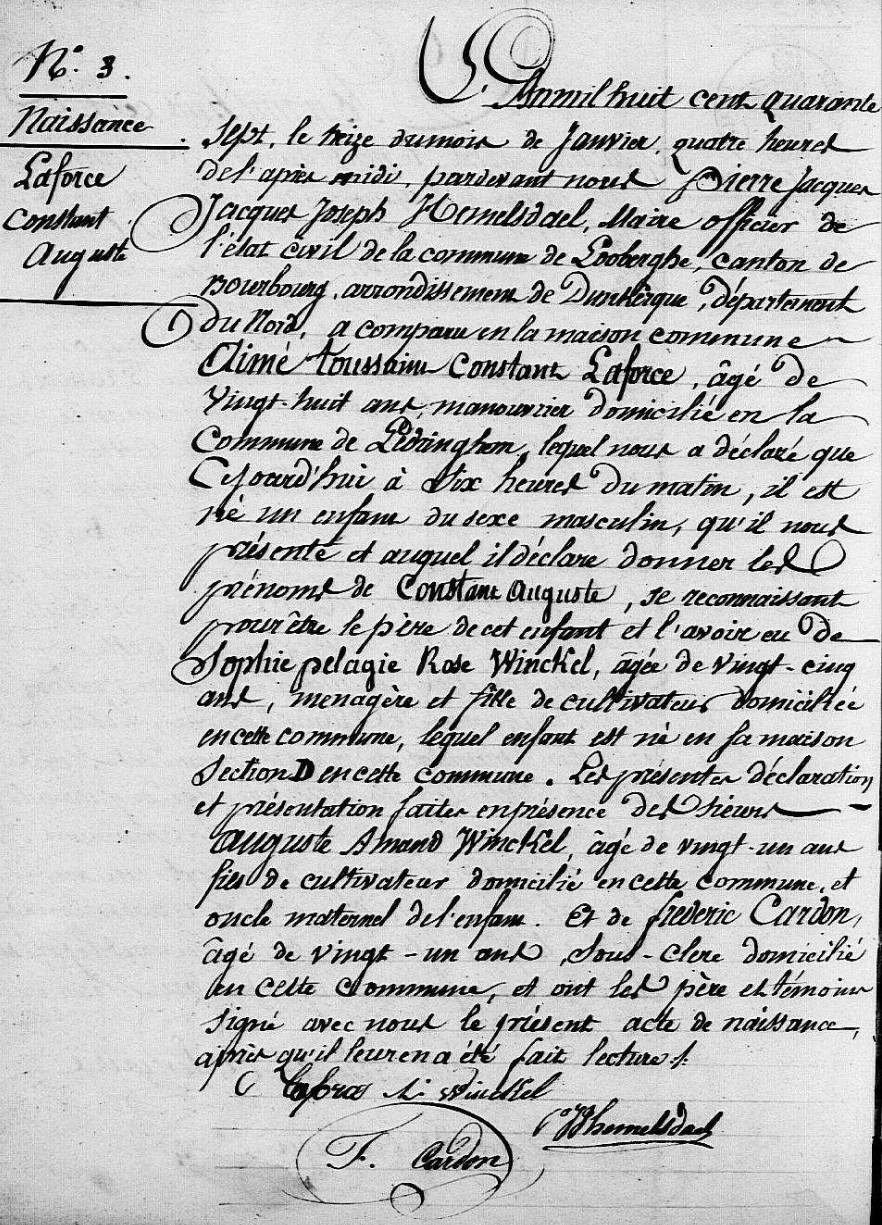 N° 3.
Naissance
Laforce
Constant
Auguste
L'An mil huit cent quarante
sept, le treize du mois de Janvier, quatre heures
de l'après midi, pardevant nous Pierre Jacques
Jacques Joseph Hemelsdael, Maire officier de
l'état civil de la commune de Looberghe, canton de
Bourbourg, arrondissement de Dunkerque, département
du Nord, a comparu en la maison commune
Aimé toussaint Constant Laforce, âgé de
vingt-huit ans, manouvrier domicilié en la
Commune de Ledringhem, lequel nous a déclaré que
Cejourd'hui à Six heures du matin, il est
né un enfant du sexe masculin, qu'il nous
présente et auquel il déclare donner les
prénoms de Constant Auguste, se reconnaissant
pour être le père de cet enfant et l'avoir eu de
Sophie pelagie Rose Winckel, âgée de vingt-cinq
ans, menagère et fille de cultivateur domiciliée
en cette commune, lequel enfant est né en sa maison
Section D en cette commune. Les présentes déclaration
et présentation faites en présence des Sieurs
Auguste Amand Winckel, âgé de vingt-un ans
fils de cultivateur domicilié en cette commune, et
oncle maternel de l'enfant. Et de frederic Cardon,
âgé de vingt-un ans, Sous-Clerc domicilié
en cette Commune, et ont les père et témoins
signé avec nous le présent acte de naissance,
après qu'il leur en a été fait lecture ./.
Laforce A: Winckel
Hemelsdael
F. Cardon